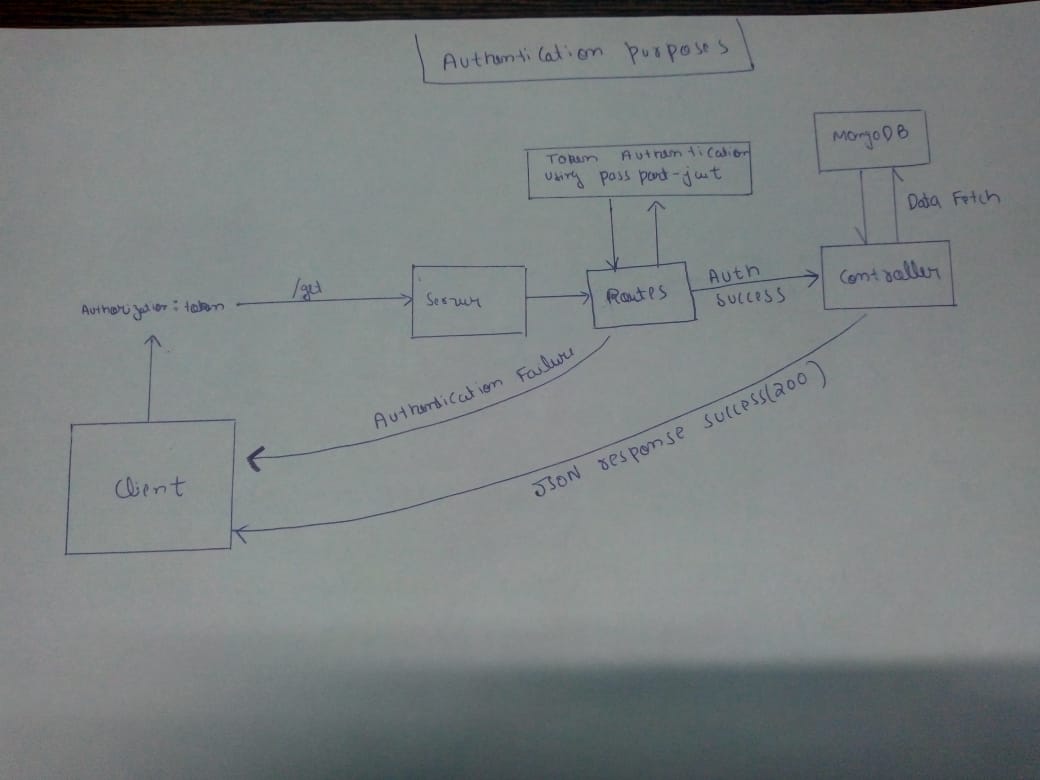 Authentication purposes
MongoDB
Token Authentication
using passport-jwt
Data Fetch
Authorization: token
/get
Server
Routes
Auth
success
Controller
Authentication Failure
JSON response success(200)
Client